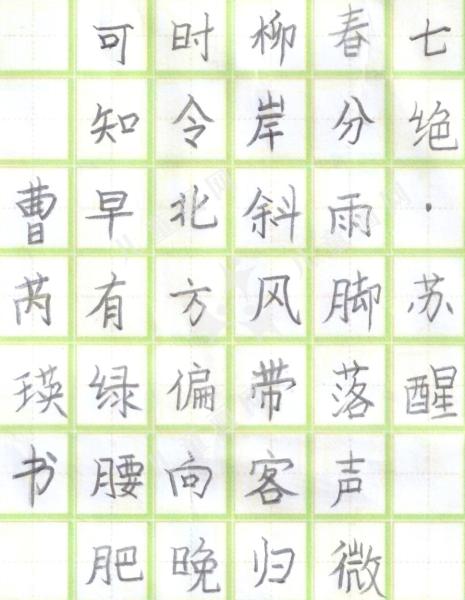 七绝·苏醒
春分雨脚落声微
柳岸斜风带客归
时令北方偏向晚
可知早有绿腰肥
曹芮瑛书